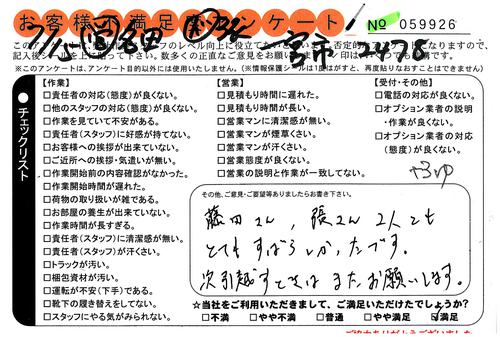 お客様 満足 アンケート! № 059926
ホームページ
記入後シールを上に貼って下さい。
※このアンケートは、アンケート目的以外には使用いたしません。(※情報保護シールは1度はがすと、再度貼りなおすことはできません)
チェックリスト
【作業】
□責任者の対応(態度)が良くない。
□他のスタッフの対応(態度)が良くない。
□作業を見ていて不安がある。
□責任者(スタッフ)に好感が持てない。
□お客様への挨拶が出来ていない。
□ご近所への挨拶・気遣いが無い。
□作業開始前の内容確認がなかった。
□作業開始時間が遅れた。
□荷物の取り扱いが雑である。
□お部屋の養生が出来ていない。
□作業時間が長すぎる。
□責任者(スタッフ)に清潔感が無い。
□責任者(スタッフ)が汗くさい。
□トラックが汚い。
□梱包資材が汚い。
□運転が不安(下手)である。
□靴下の履き替えをしてない。
□スタッフにやる気がみられない。
【営業】
□見積もり時間に遅れた。
□見積もり時間が長い。
□営業マンに清潔感が無い。
□営業マンが煙草くさい。
□営業マンが汗くさい。
□営業態度が良くない。
□営業の説明と作業が一致してない。
【受付・その他】
□電話の対応が良くない。
□オプション業者の説明
・作業が良くない。
□オプション業者の対応
(態度)が良くない。
その他、ご意見・ご要望等ありましたらお書き下さい。
藤田さん、張さん 2人とも
とてもすばらしかったです。
次引越すときは またお願いします。
☆当社をご利用いただきまして、ご満足いただけたでしょうか?
□不満 □やや不満 □普通 □やや満足 ☑満足